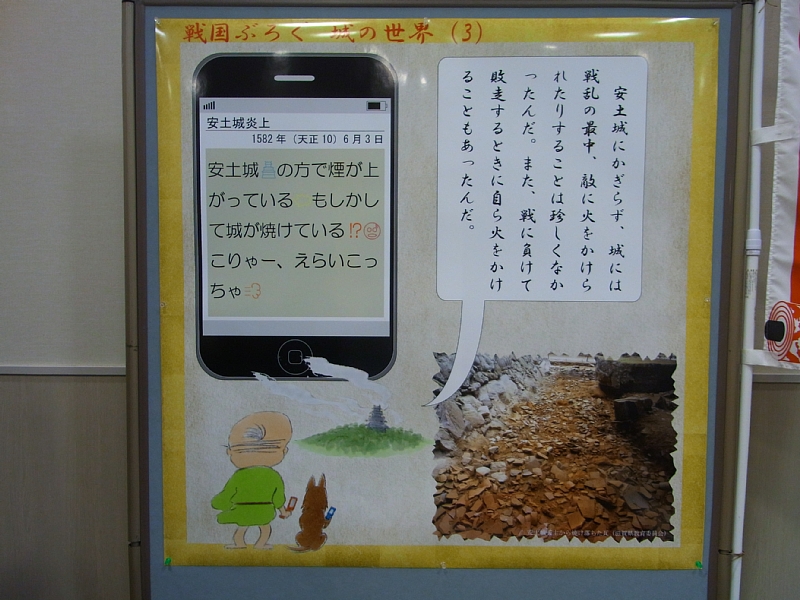 戦国ぶろぐ 城の世界（3）
安土城炎上
1582年（天正10）6月3日
安土城の方で煙が上
がっている もしかし
て城が焼けている!?
こりゃー、えらいこっ
ちゃ
安土城にかぎらず、城には
戦乱の最中、敵に火をかけら
れたりすることは珍しくなか
ったんだ。また、戦に負けて
敗走するときに自ら火をかけ
ることもあったんだ。